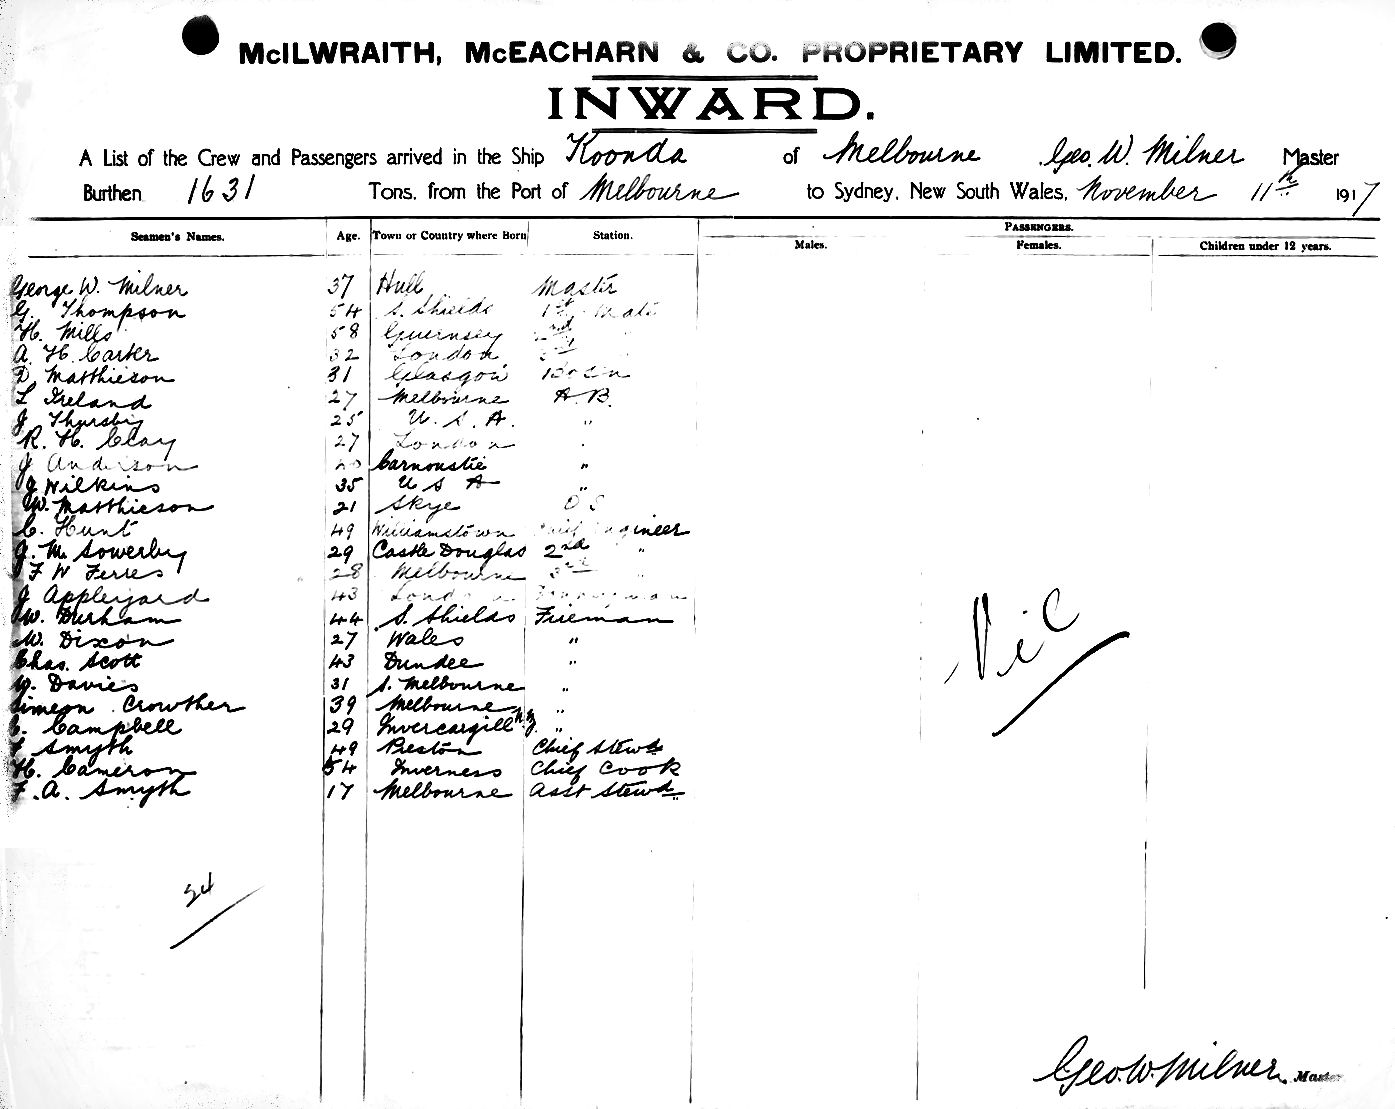 McILWRAITH, McEACHARN & CO. PROPRIETARY LIMITED.
INWARD.
A List of the Crew and Passengers arrived in the Ship Koonda of Melbourne Geo. W. Milner Master
Burthen 1631 Tons, from the Port of Melbourne to Sydney, New South Wales, November 11th 1917
PASSENGERS.
Seamen's Names. Age. Town or Country where Born Station. Males. Females. Children under 12 years.
George W. Milner 37 Hull Master
G. Thompson 54 S. Shields 1st Mate
H. Mills 58 Guernsey 2nd "
A. H. Carter 32 London 3rd "
D. Matthieson 31 Glasgow Bosn
L Ireland 27 Melbourne A.B.
J Thursby 25 U.S.A. "
R. H. Clay 27 London "
J Anderson Carnoustie "
J Wilkins 35 U S A "
W. Matthieson 21 Skye O S
C. Hunt 49 Williamstown Chief Engineer
J. M. Sowerby 29 Castle Douglas 2nd "
F W Ferres 28 Melbourne 3rd "
J Appleyard 43 London Donkeyman
W. Durham 44 S. Shields Fireman
W. Dixon 27 Wales "
Chas. Scott 43 Dundee "
W. Davies 31 S. Melbourne "
Simeon Crowther 39 Melbourne "
C. Campbell 29 Invercargill N.Z. "
F Smyth 49 Preston Chief Stewd
H. Cameron 54 Inverness Chief Cook
F. A. Smyth 17 Melbourne Asst Stewd
Vic
24
Geo. W. Milner Master